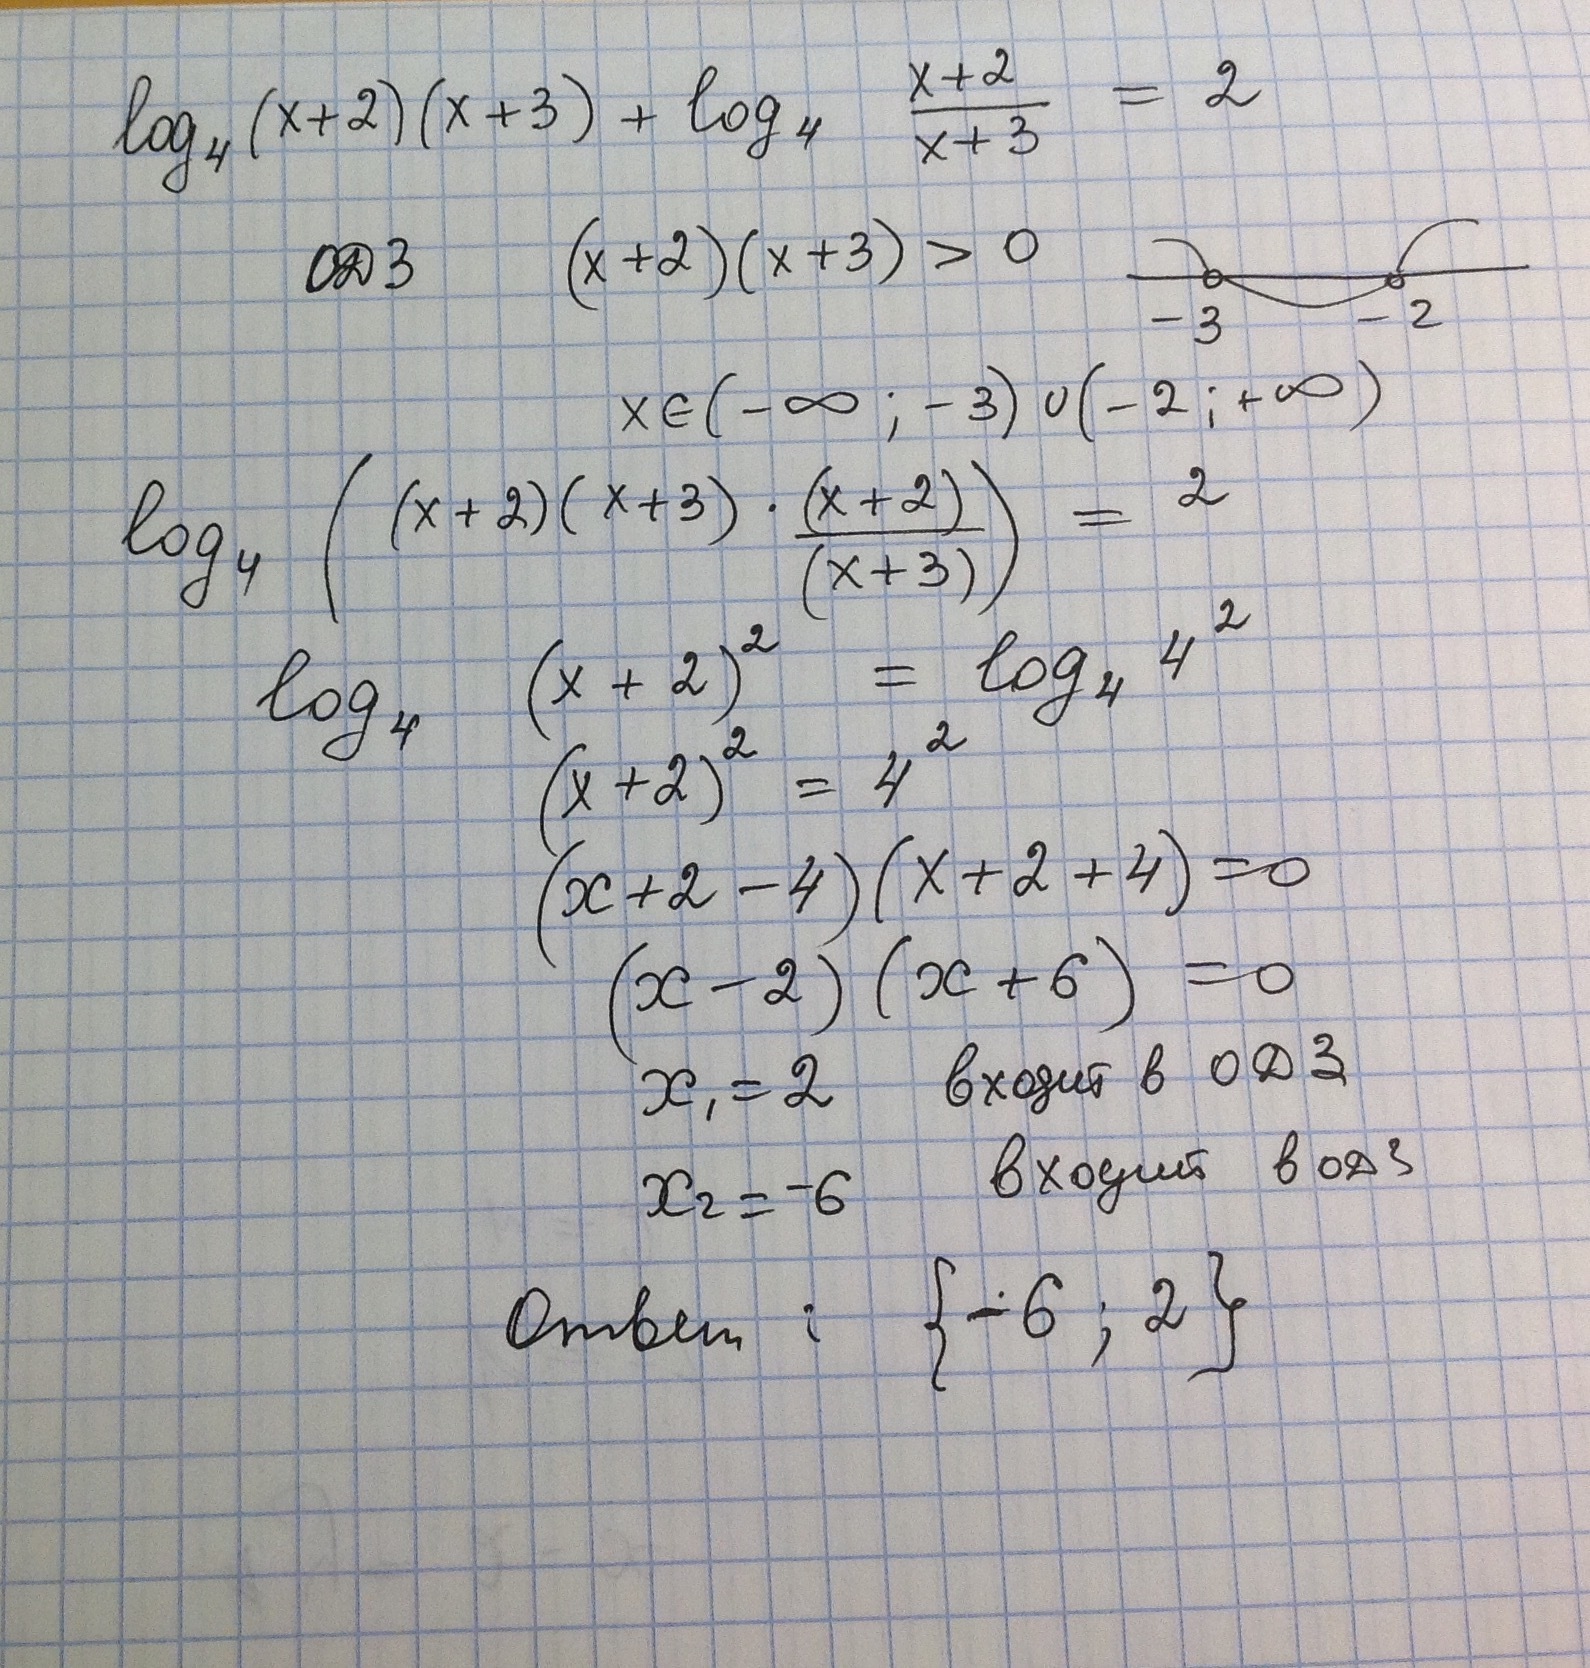 log₄(x+2)(x+3) + log₄ (x+2)/(x+3) = 2
ОДЗ (x+2)(x+3) > 0 -3 -2
x∈(-∞; -3)∪(-2; +∞)
log₄ ((x+2)(x+3) · (x+2)/(x+3)) = 2
log₄ (x+2)² = log₄ 4²
(x+2)² = 4²
(x+2-4)(x+2+4)=0
(x-2)(x+6)=0
x₁=2 входит в ОДЗ
x₂=-6 входит в ОДЗ
Ответ: {-6; 2}